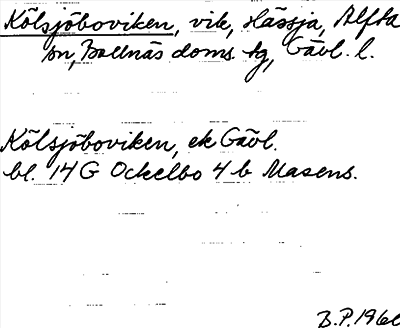 Kölsjöboviken, vik, Hässja, Alfta
sn, Bollnäs doms. tg, Gävl. l.
Kölsjöboviken, ek Gävl.
bl. 14 G Ockelbo 4 b Masens.
B.P. 196